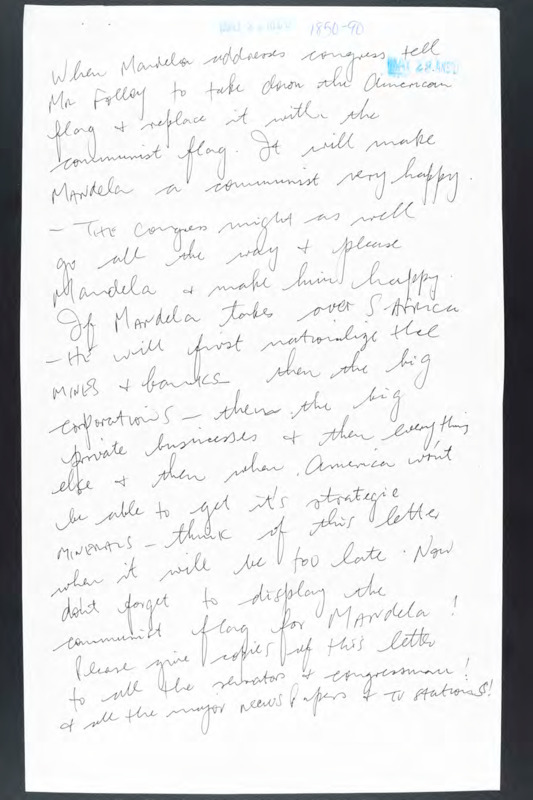 1850-90
When Mandela addresses congress tell
Mr Folloy to take down the American
flag & replace it with the
communist flag. It will make
MANdela a communist very happy.
- THE congress might as well
go all the way & please
Mandela & make him happy.
If MANdela takes over S AfRica
- He will first nationalize the
MINES & banks then the big
corporations - then the big
private businesses & then everything
else & then when America won't
be able to get it's strategic
MINERALS - think of this letter
when it will be too late. Now
don't forget to display the
communist flag for MANdela!
Please give copies of this letter
to all the senators & congressman!
& all the major newspapers & TV stations!